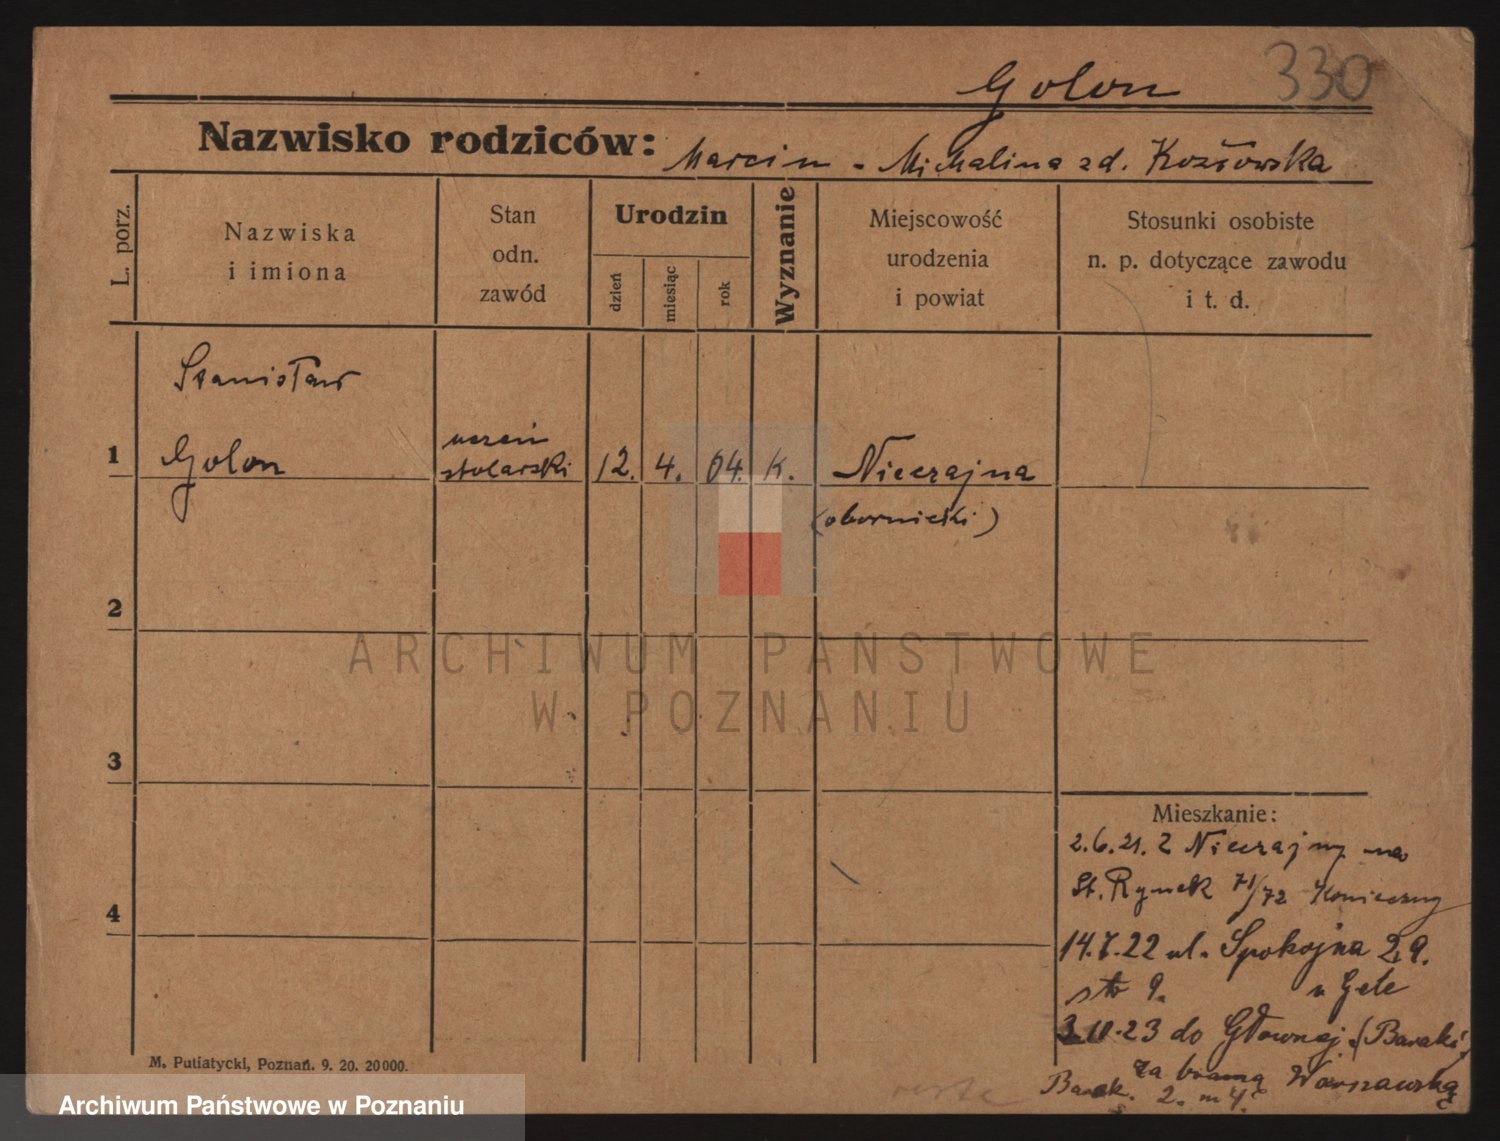 Golon 330
Nazwisko rodziców: Marcin - Michalina zd. Kozłowska
L. porz.
Nazwiska
i imiona
Stan
odn.
zawód
Urodzin
dzień
miesiąc
rok
Wyznanie
Miejscowość
urodzenia
i powiat
Stosunki osobiste
n. p. dotyczące zawodu
i t. d.
Stanisław
1 Golon
uczeń
stolarski
12. 4. 04. K. Nieczajna
(obornicki)
2
3
4
Mieszkanie:
2.6.21. z Nieczajny na
St. Rynek 71/72 Konieczny
14.7.22 ul. Spokojna 29.
u Gete
9.
10.23 do Głównej (Baraki
za bramą Warszawską
Barak. 2. m 4.
M. Putiatycki, Poznań. 9. 20. 20000.
ARCHIWUM PAŃSTWOWE
W POZNANIU
Archiwum Państwowe w Poznaniu